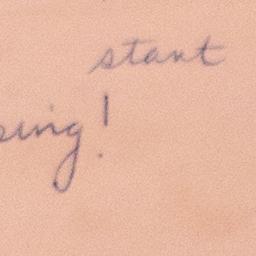 start
sing!